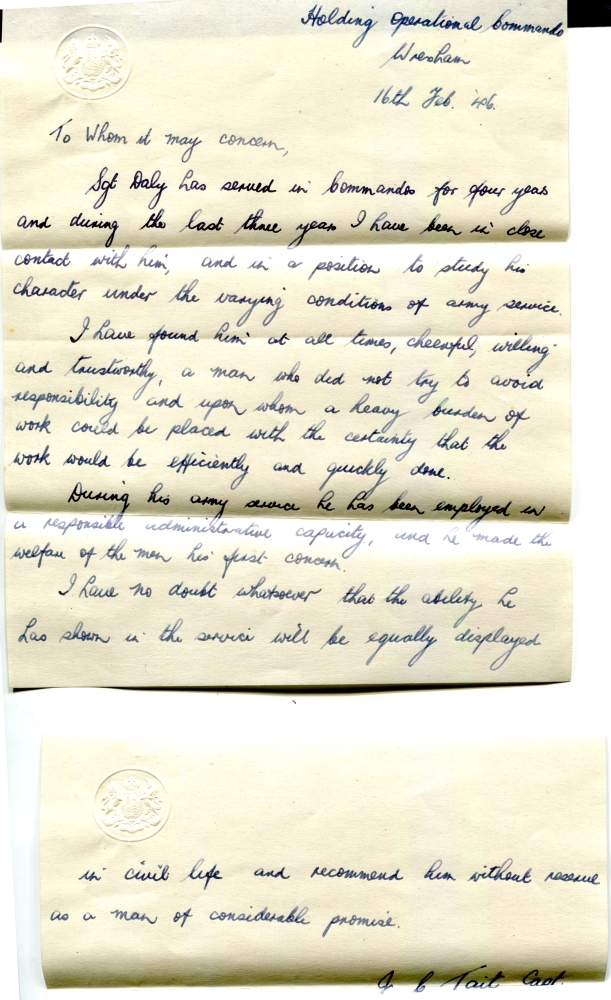 Holding Operational Commando
Wrexham
16th Feb. '46.
To Whom it may concern,
Sgt Daly has served in Commandos for four years
and during the last three years I have been in close
contact with him, and in a position to study his
character under the varying conditions of army service.
I have found him at all times, cheerful, willing
and trustworthy, a man who did not try to avoid
responsibility and upon whom a heavy burden of
work could be placed with the certainty that the
work would be efficiently and quickly done.
During his army service he has been employed in
a responsible administrative capacity, and he made the
welfare of the men his first concern.
I have no doubt whatsoever that the ability he
has shown in the service will be equally displayed
in civil life and recommend him without reserve
as a man of considerable promise.
C Tait Capt.